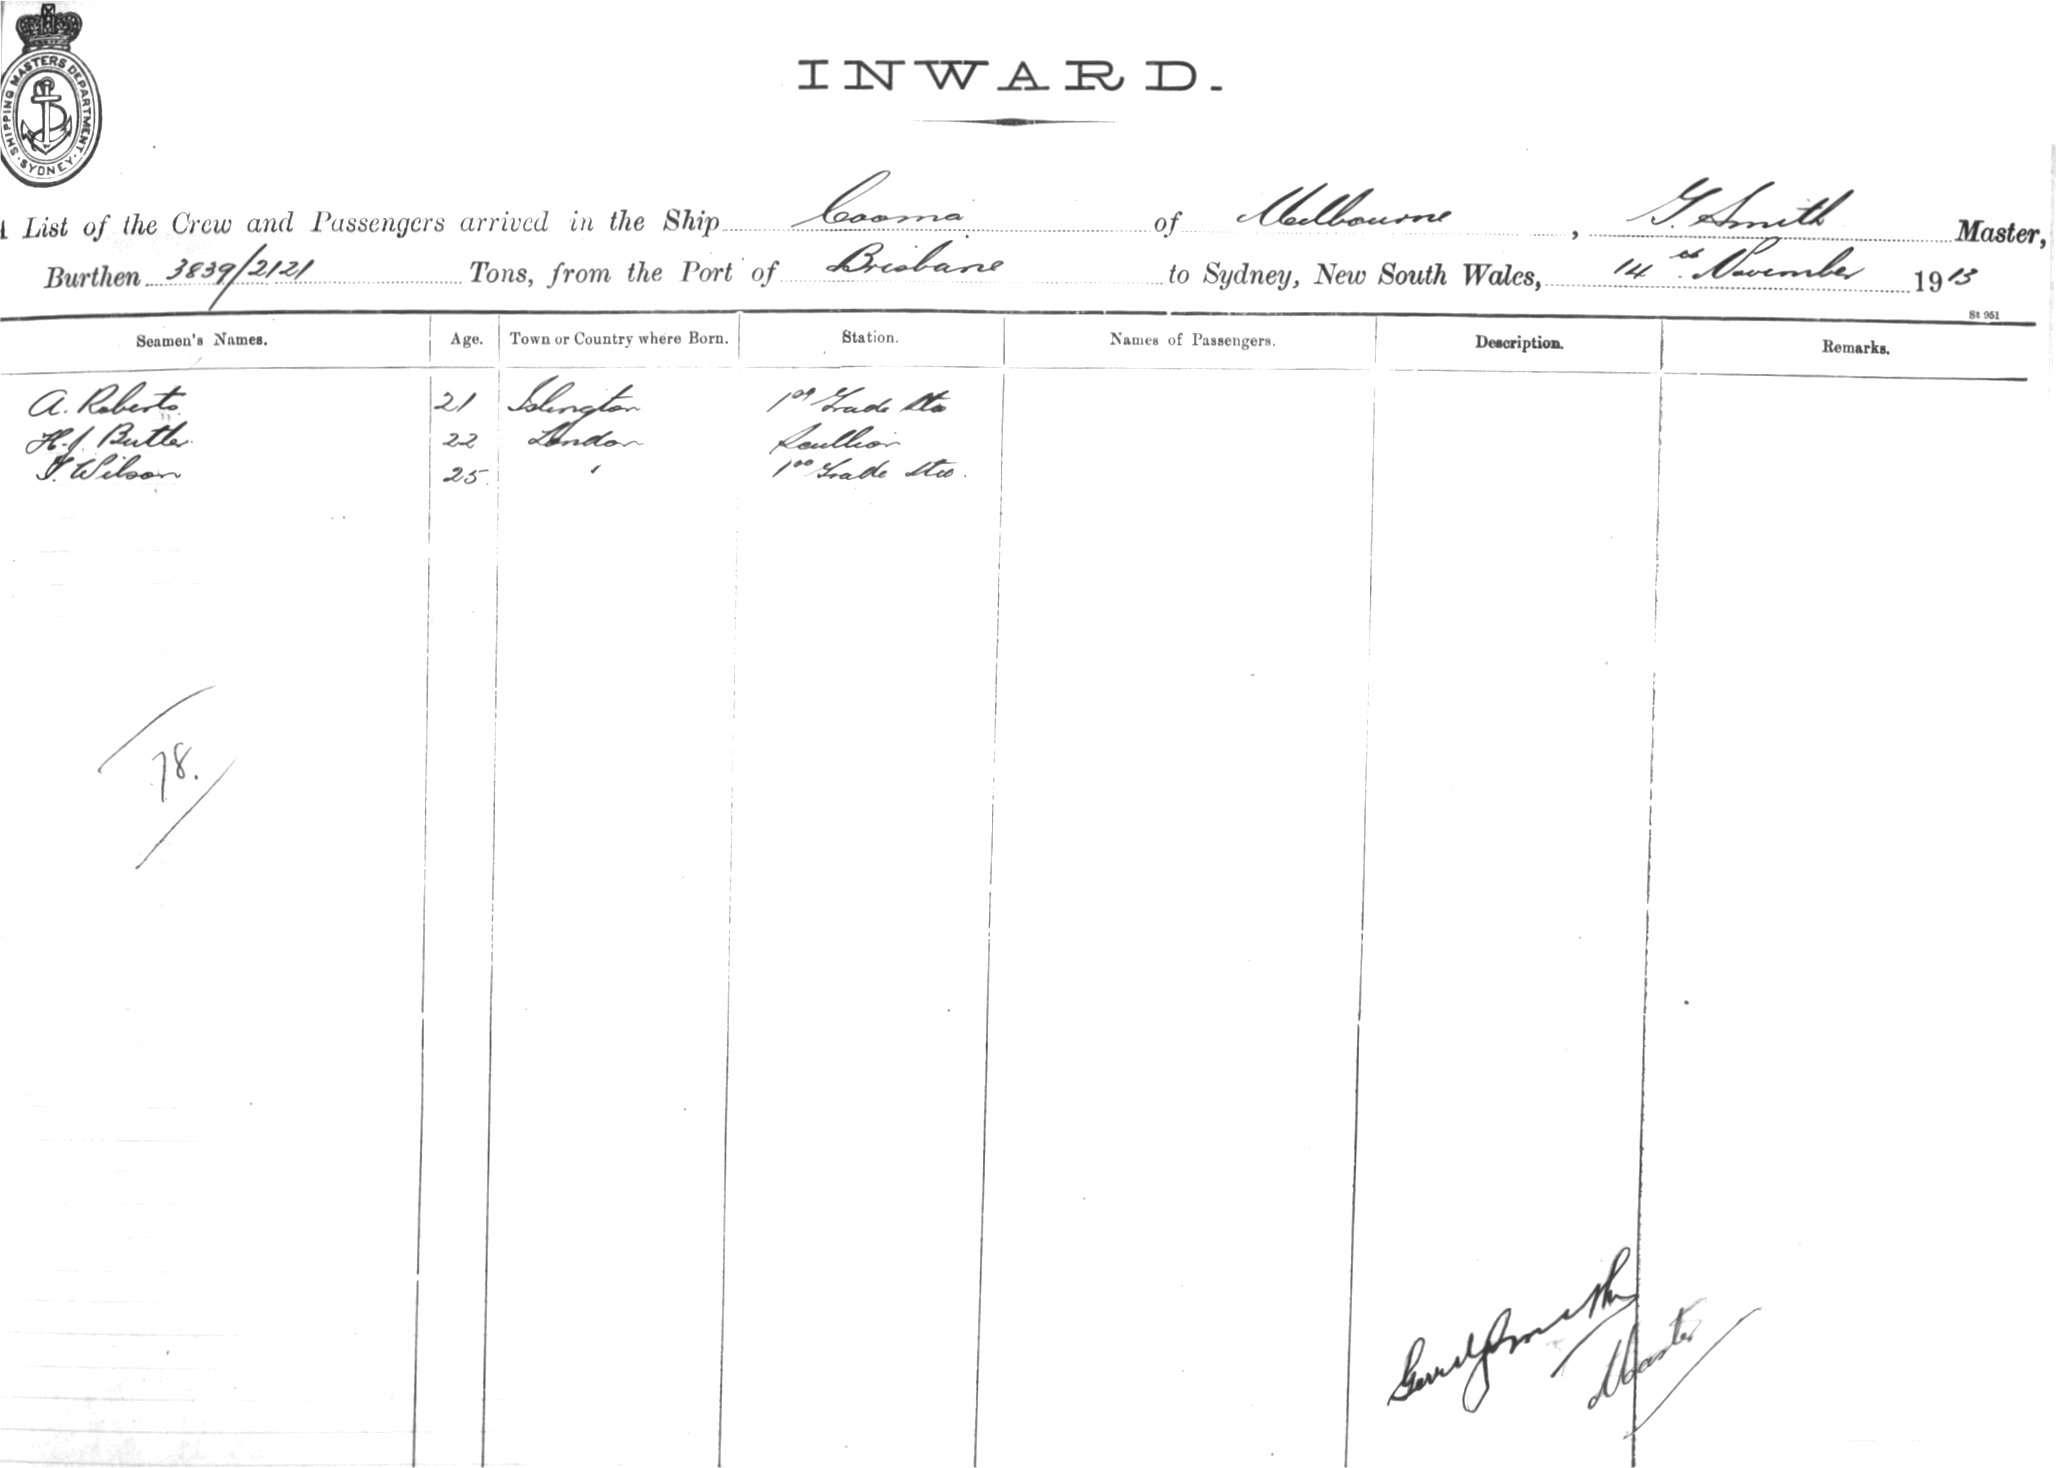 SHIPPING MASTERS DEPARTMENT · SYDNEY ·
INWARD.
List of the Crew and Passengers arrived in the Ship Cooma of Melbourne, G. Smith Master,
Burthen 3839/2121 Tons, from the Port of Brisbane to Sydney, New South Wales, 14th November 1913
St 951
Seamen's Names. Age. Town or Country where Born. Station. Names of Passengers. Description. Remarks.
A. Roberts 21 Islington Grade Stw
H. J. Butler 22 London Scullion
Wilson 25 " Grade Stw.
78.
Smith
Master